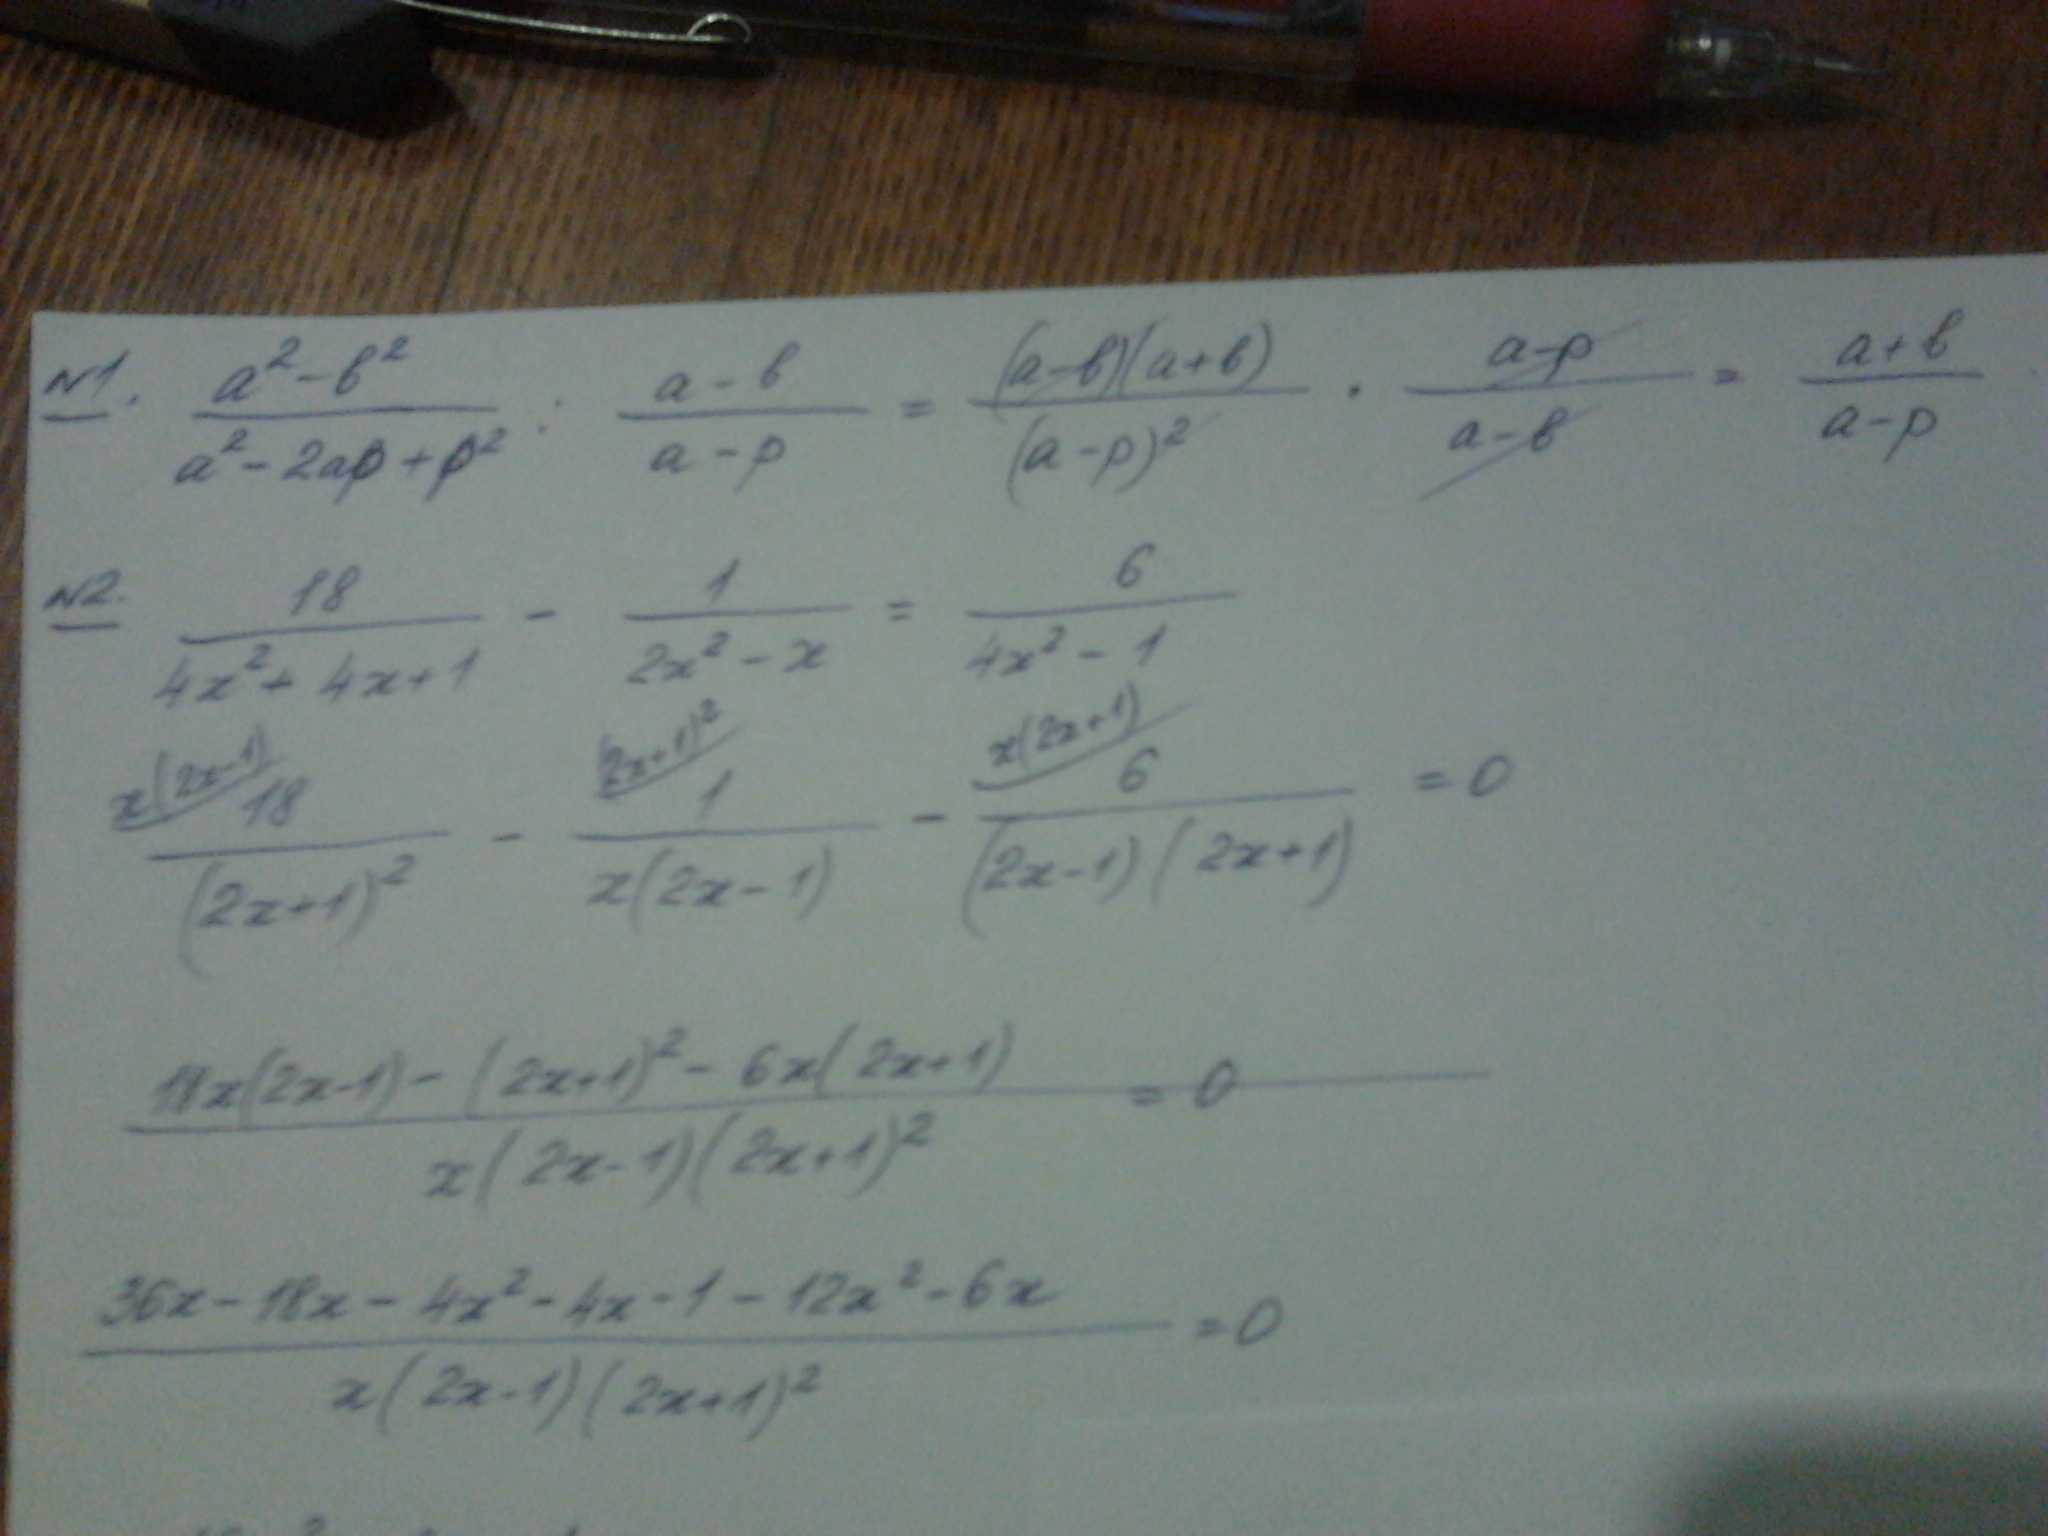 №1. (a² - b²)/(a² - 2ap + p²) : (a - b)/(a - p) = ((a-b)(a+b))/((a-p)²) · (a-p)/(a-b) = (a+b)/(a-p)
№2. 18/(4x² + 4x + 1) - 1/(2x² - x) = 6/(4x² - 1)
x(2x-1) (2x+1)² x(2x+1)
18/(2x+1)² - 1/(x(2x-1)) - 6/((2x-1)(2x+1)) = 0
(18x(2x-1) - (2x+1)² - 6x(2x+1))/(x(2x-1)(2x+1)²) = 0
(36x - 18x - 4x² - 4x - 1 - 12x² - 6x)/(x(2x-1)(2x+1)²) = 0